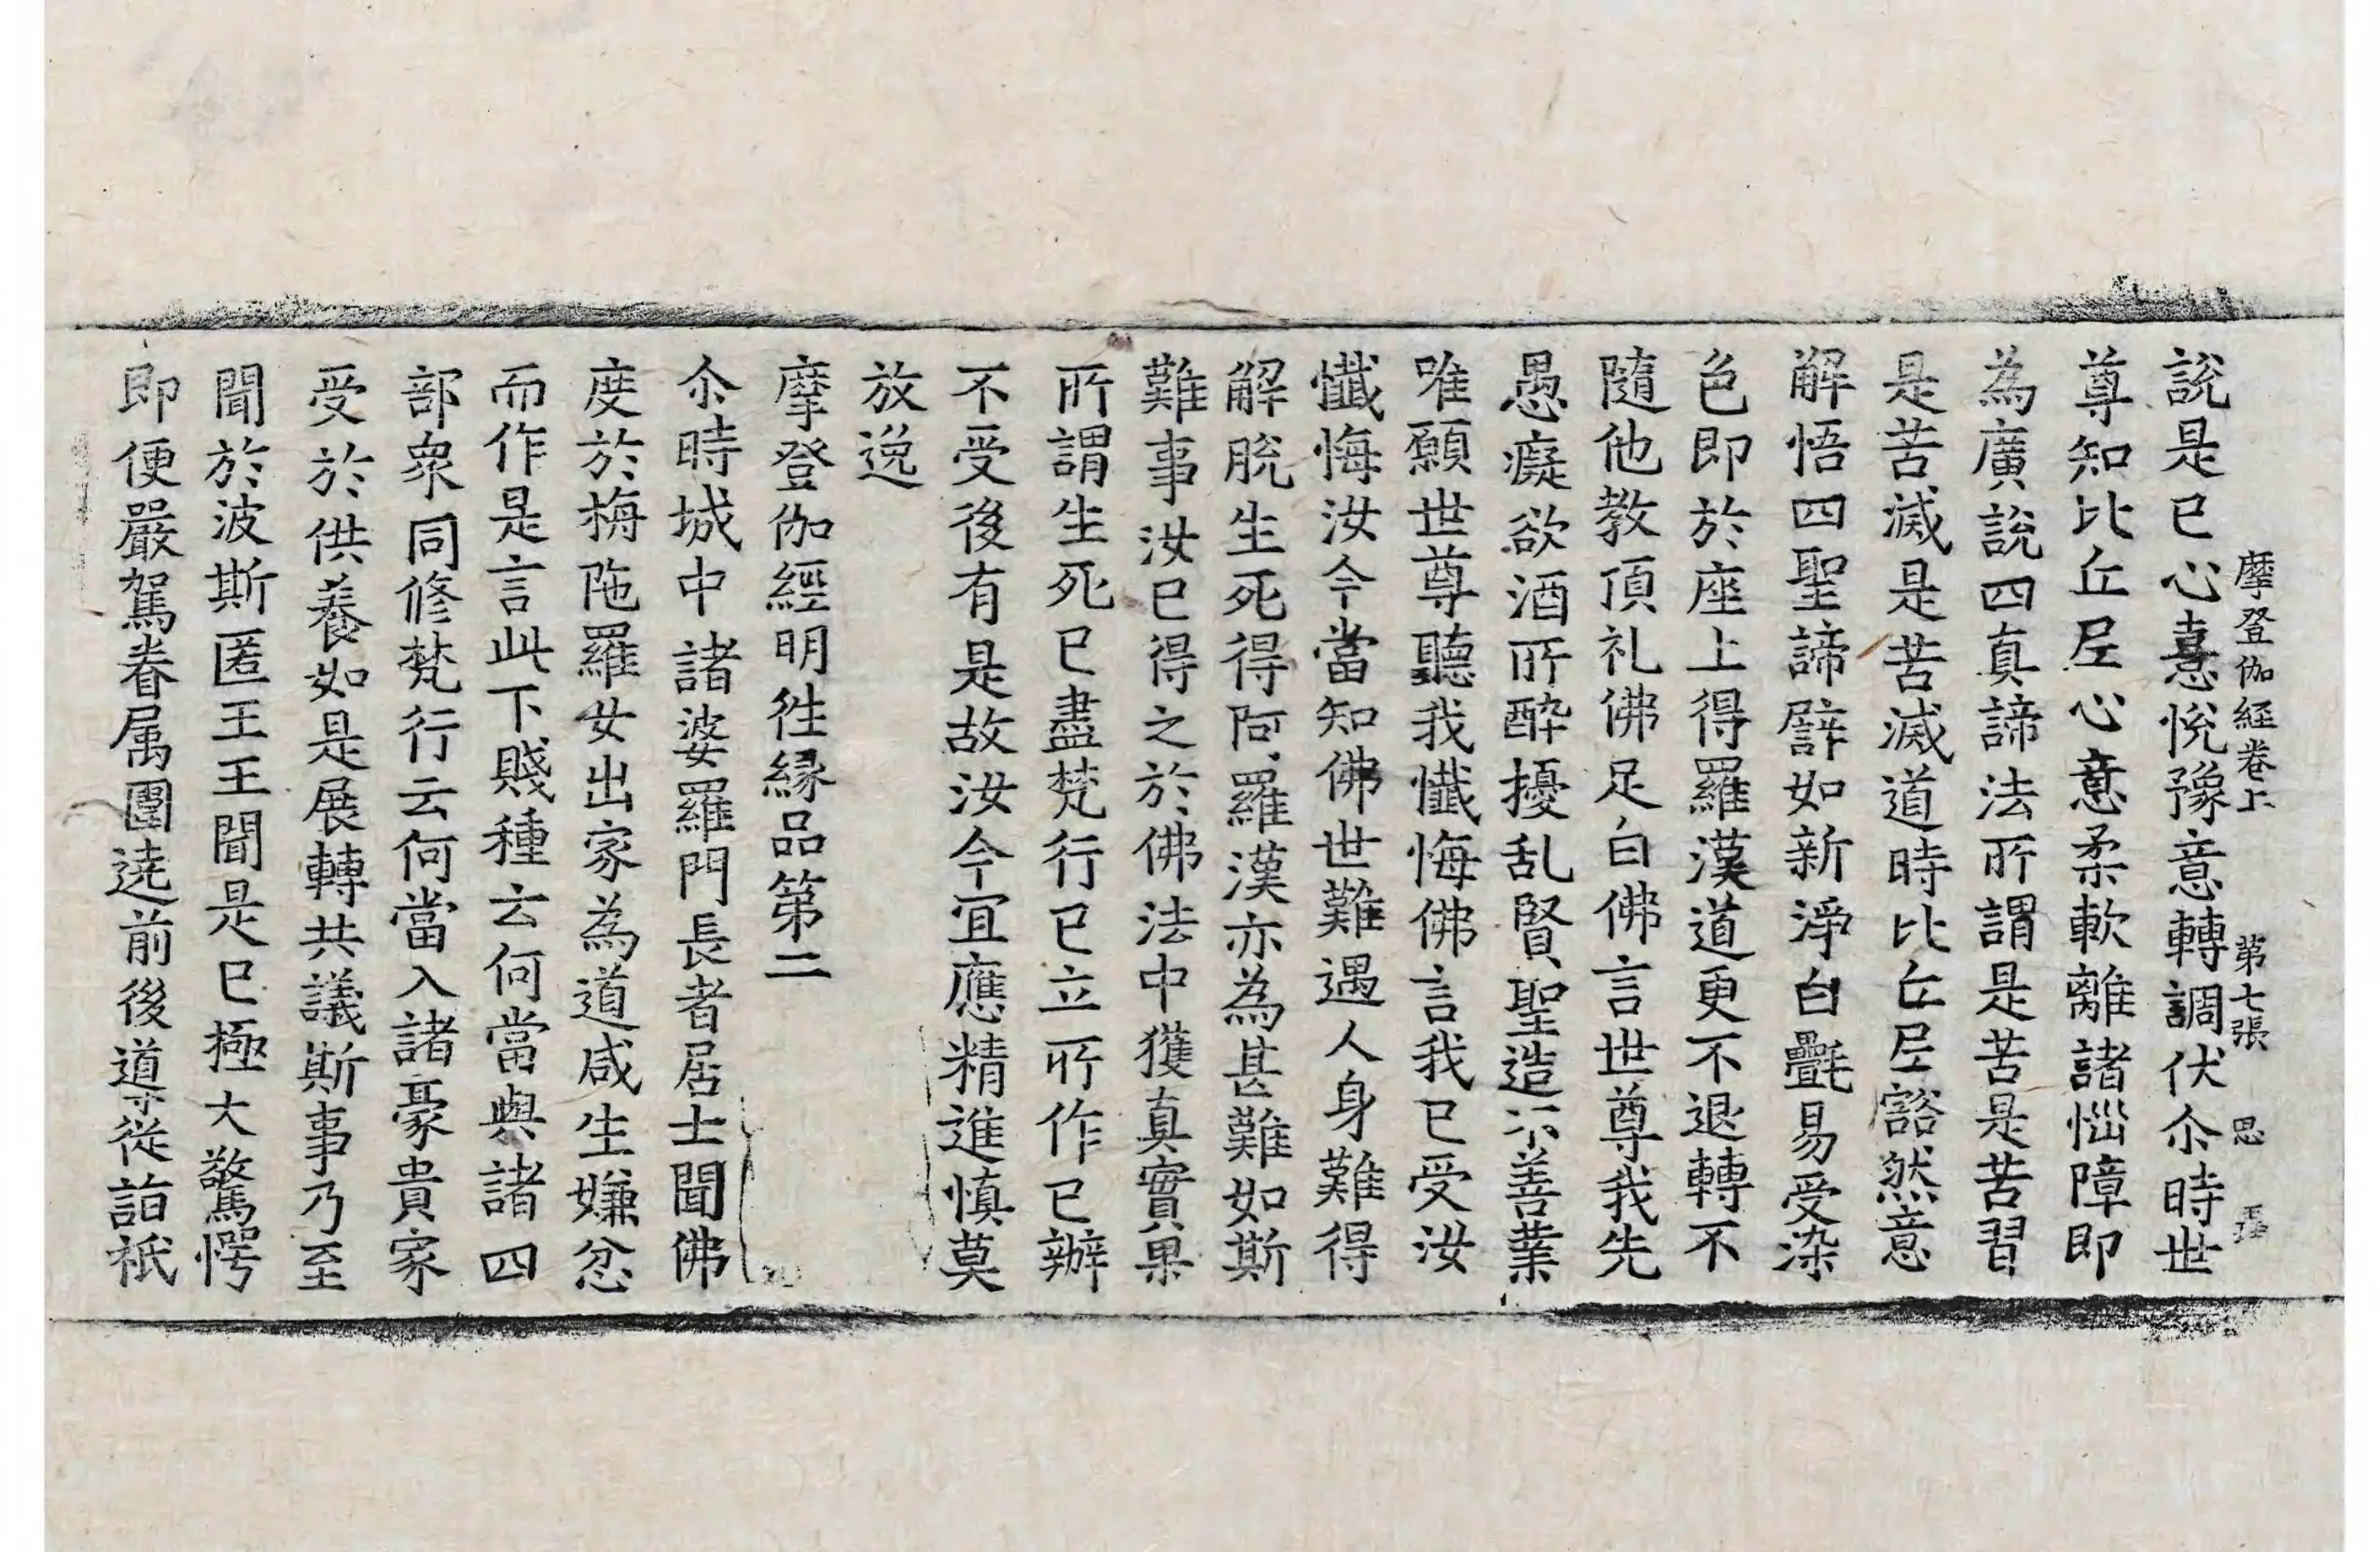 摩登伽経卷上 第七張 思
說是已心憙悅豫意轉調伏尒時世
尊知比丘尼心意柔軟離諸惱障即
為廣說四真諦法所謂是苦是苦習
是苦滅是苦滅道時比丘尼豁然意
解悟四聖諦譬如新淨白疊易受染
色即於座上得羅漢道更不退轉不
隨他教頂礼佛足白佛言世尊我先
愚癡欲酒所醉擾乱賢聖造不善業
唯願世尊聽我懺悔佛言我已受汝
懺悔汝今當知佛世難遇人身難得
解脫生死得阿羅漢亦為甚難如斯
難事汝已得之於佛法中獲真實果
所謂生死已盡梵行已立所作已辦
不受後有是故汝今宜應精進慎莫
放逸
摩登伽經明往緣品第二
尒時城中諸婆羅門長者居士聞佛
度於栴陁羅女出家為道咸生嫌忿
而作是言此下賤種云何當與諸四
部衆同修梵行云何當入諸豪貴家
受於供養如是展轉共議斯事乃至
聞於波斯匿王王聞是已極大驚愕
即便嚴駕眷属圍遶前後導從詣祇